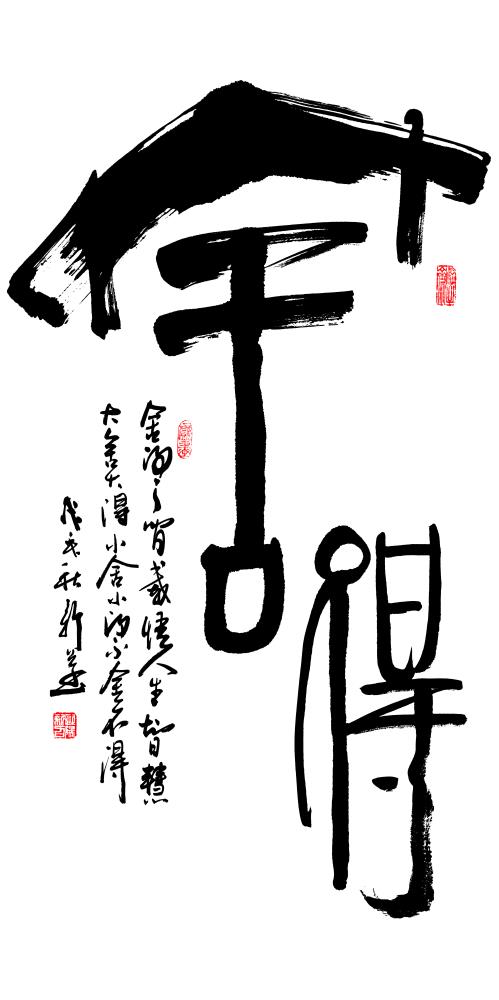 舍得
舍得之義悟人生智慧
大舍大得小舍小得不舍不得
戊戌秋